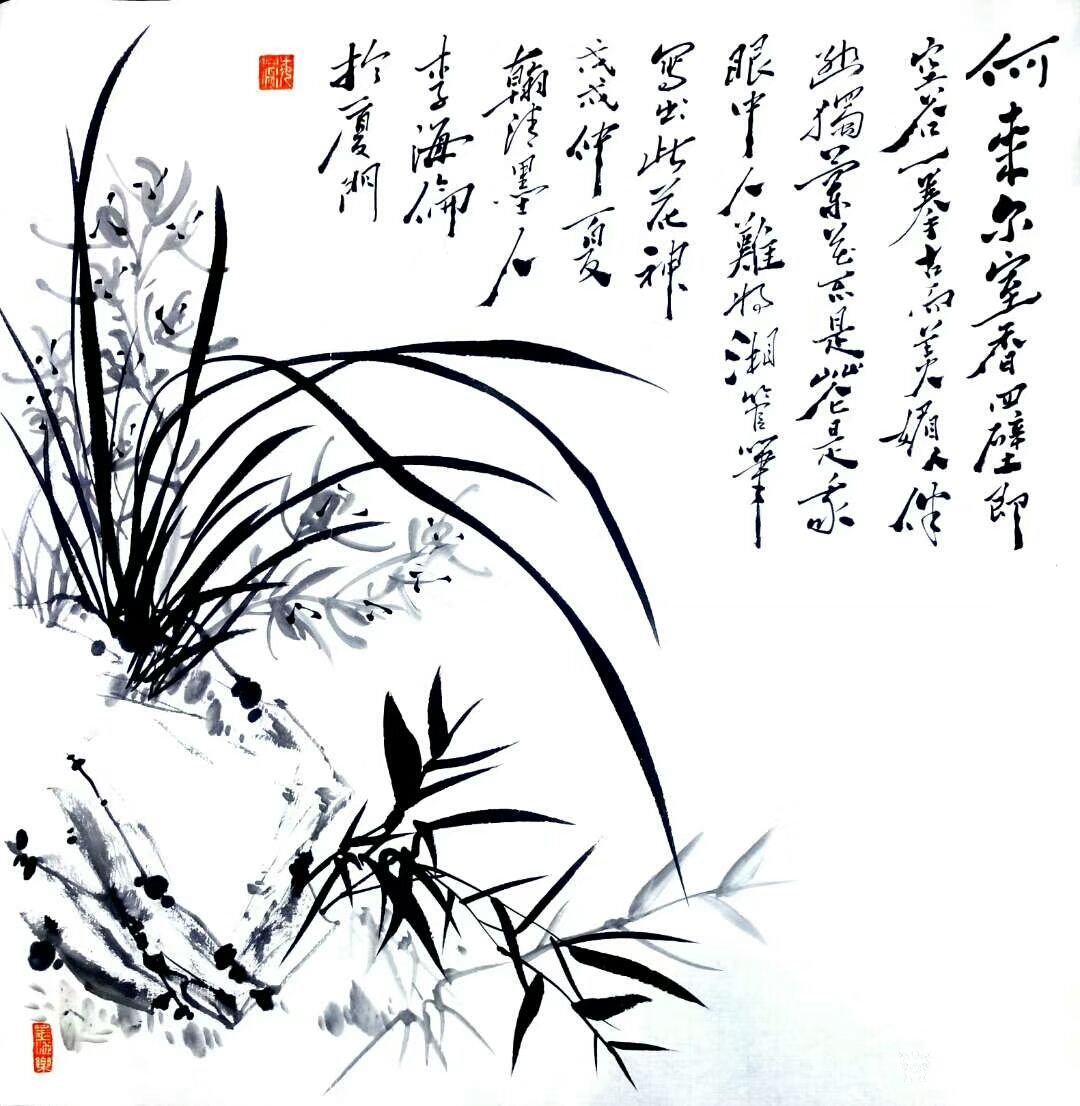 何来尔室香四壁即
空谷一拳古而美媚人伴
幽獨蘭花不是花是我
眼中人難将湘管筆
寫出此花神
戊戌仲夏
翰清墨人
李海倫
於厦門